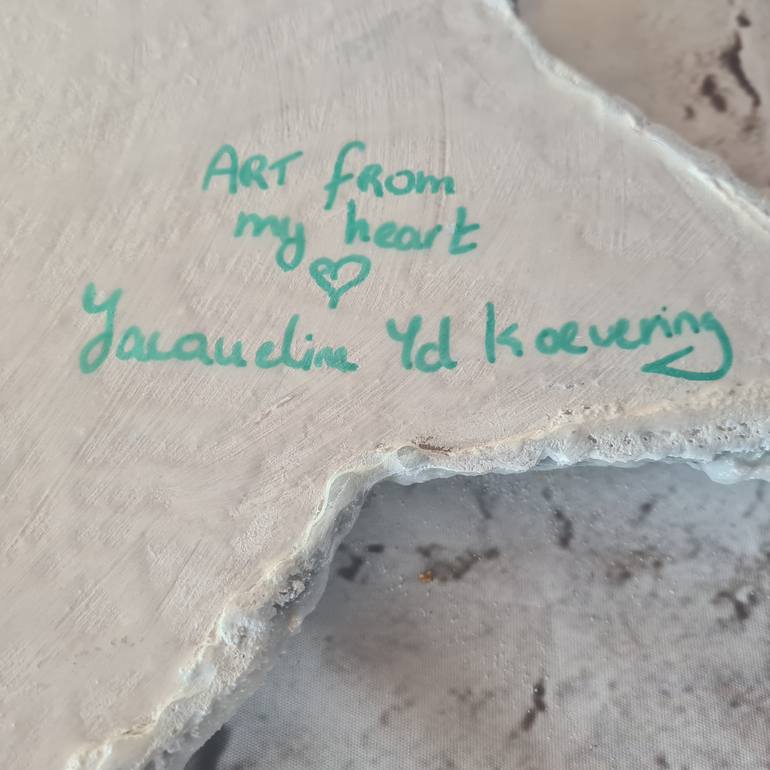 ART from
my heart
♡
Jacqueline Yd Koevering